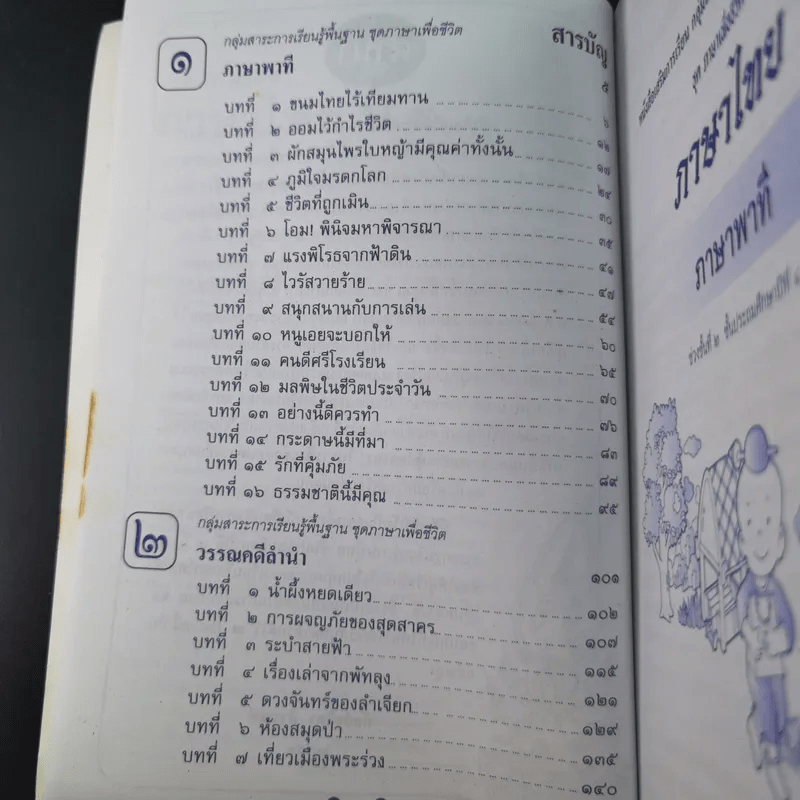 ๑
กลุ่มสาระการเรียนรู้พื้นฐาน ชุดภาษาเพื่อชีวิต
สารบัญ
ภาษาพาที ๕
บทที่ ๑ ขนมไทยไร้เทียมทาน ๖
บทที่ ๒ ออมไว้กำไรชีวิต ๑๒
บทที่ ๓ ผักสมุนไพรใบหญ้ามีคุณค่าทั้งนั้น ๑๗
บทที่ ๔ ภูมิใจมรดกโลก ๒๔
บทที่ ๕ ชีวิตที่ถูกเมิน ๓๐
บทที่ ๖ โอม! พินิจมหาพิจารณา ๓๕
บทที่ ๗ แรงพิโรธจากฟ้าดิน ๔๑
บทที่ ๘ ไวรัสวายร้าย ๔๗
บทที่ ๙ สนุกสนานกับการเล่น ๕๔
บทที่ ๑๐ หนูเอยจะบอกให้ ๖๐
บทที่ ๑๑ คนดีศรีโรงเรียน ๖๕
บทที่ ๑๒ มลพิษในชีวิตประจำวัน ๗๐
บทที่ ๑๓ อย่างนี้ดีควรทำ ๗๖
บทที่ ๑๔ กระดาษนี้มีที่มา ๘๓
บทที่ ๑๕ รักที่คุ้มภัย ๘๙
บทที่ ๑๖ ธรรมชาตินี้มีคุณ ๙๕
๒
กลุ่มสาระการเรียนรู้พื้นฐาน ชุดภาษาเพื่อชีวิต
วรรณคดีลำนำ ๑๐๑
บทที่ ๑ น้ำผึ้งหยดเดียว ๑๐๒
บทที่ ๒ การผจญภัยของสุดสาคร ๑๐๗
บทที่ ๓ ระบำสายฟ้า ๑๑๕
บทที่ ๔ เรื่องเล่าจากพัทลุง ๑๒๑
บทที่ ๕ ดวงจันทร์ของลำเจียก ๑๒๙
บทที่ ๖ ห้องสมุดป่า ๑๓๕
บทที่ ๗ เที่ยวเมืองพระร่วง ๑๔๐
หนังสือเสริมการเรียน
ชุด ภาษาเพื่อชีวิต
ภาษาไทย
ภาษาพาที
ช่วงชั้นที่ ๒ ชั้นประถมศึกษาปีที่